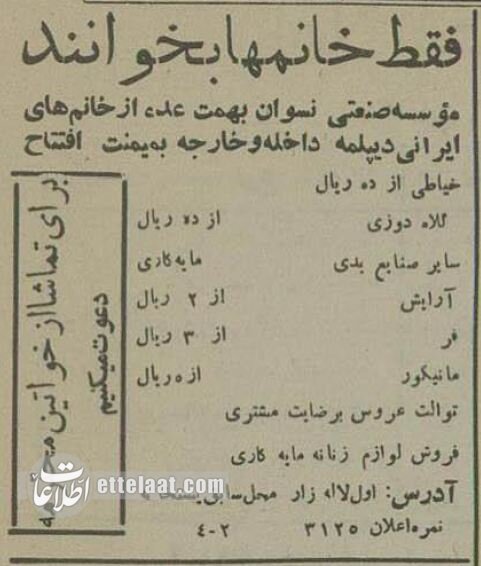 فقط خانمها بخوانند
مؤسسه صنعتی نسوان بهمت عده از خانم های
ایرانی دیپلمه داخله و خارجه بمیمنت افتتاح
خیاطی از ده ریال
کلاه دوزی از ده ریال
سایر صنایع یدی مایه کاری
آرایش از ۲ ریال
فر از ۳ ریال
مانیکور از ۵ ریال
توالت عروس برضایت مشتری
فروش لوازم زنانه مایه کاری
آدرس: اول لاله زار محل سابق
نمره اعلان ۳۱۲۵ ۲-۴
برای تماشا از خواتین
دعوت میکنیم
اطلاعات ettelaat.com